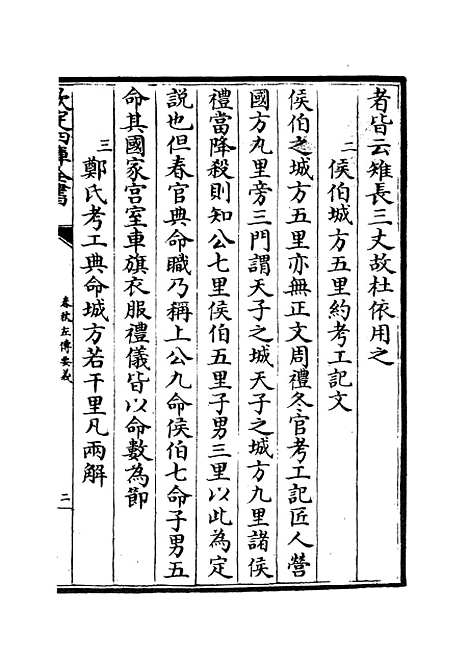 者皆云雉長三丈故杜依用之
二 侯伯城方五里約考工記文
侯伯之城方五里亦無正文周禮冬官考工記匠人營
國方九里旁三門謂天子之城天子之城方九里諸侯
禮當降殺則知公七里侯伯五里子男三里以此為定
說也但春官典命職乃稱上公九命侯伯七命子男五
命其國家宫室車旗衣服禮儀皆以命數為節
三 鄭氏考工典命城方若干里凡兩解
欽定四庫全書
春秋左傳要義
二